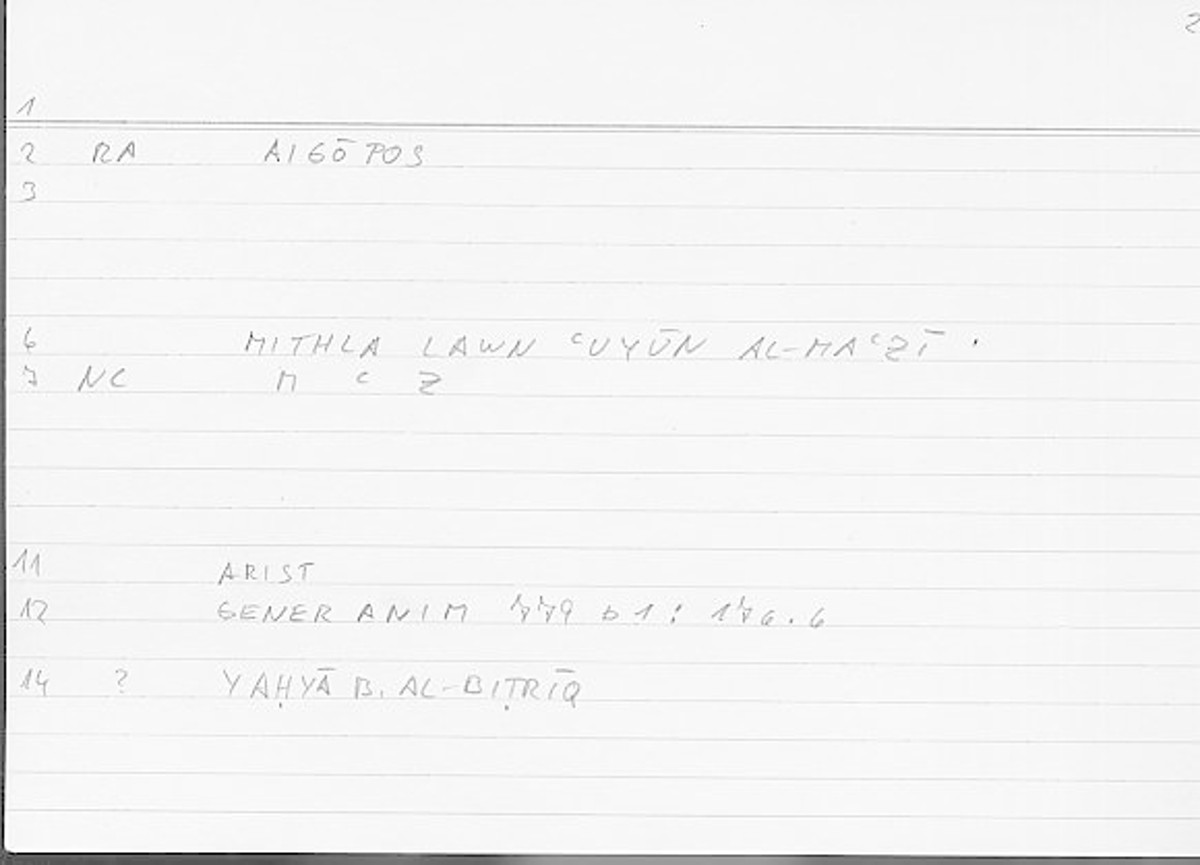 2
1
2 RA AIGŌPOS
3
6 MITHLA LAWN ʿUYŪN AL-MAʿZĪ .
7 NC M ʿ Z
11 ARIST
12 GENER ANIM 779 b 1 : 176.6
14 ? YAḤYĀ B. AL-BIṬRĪQ